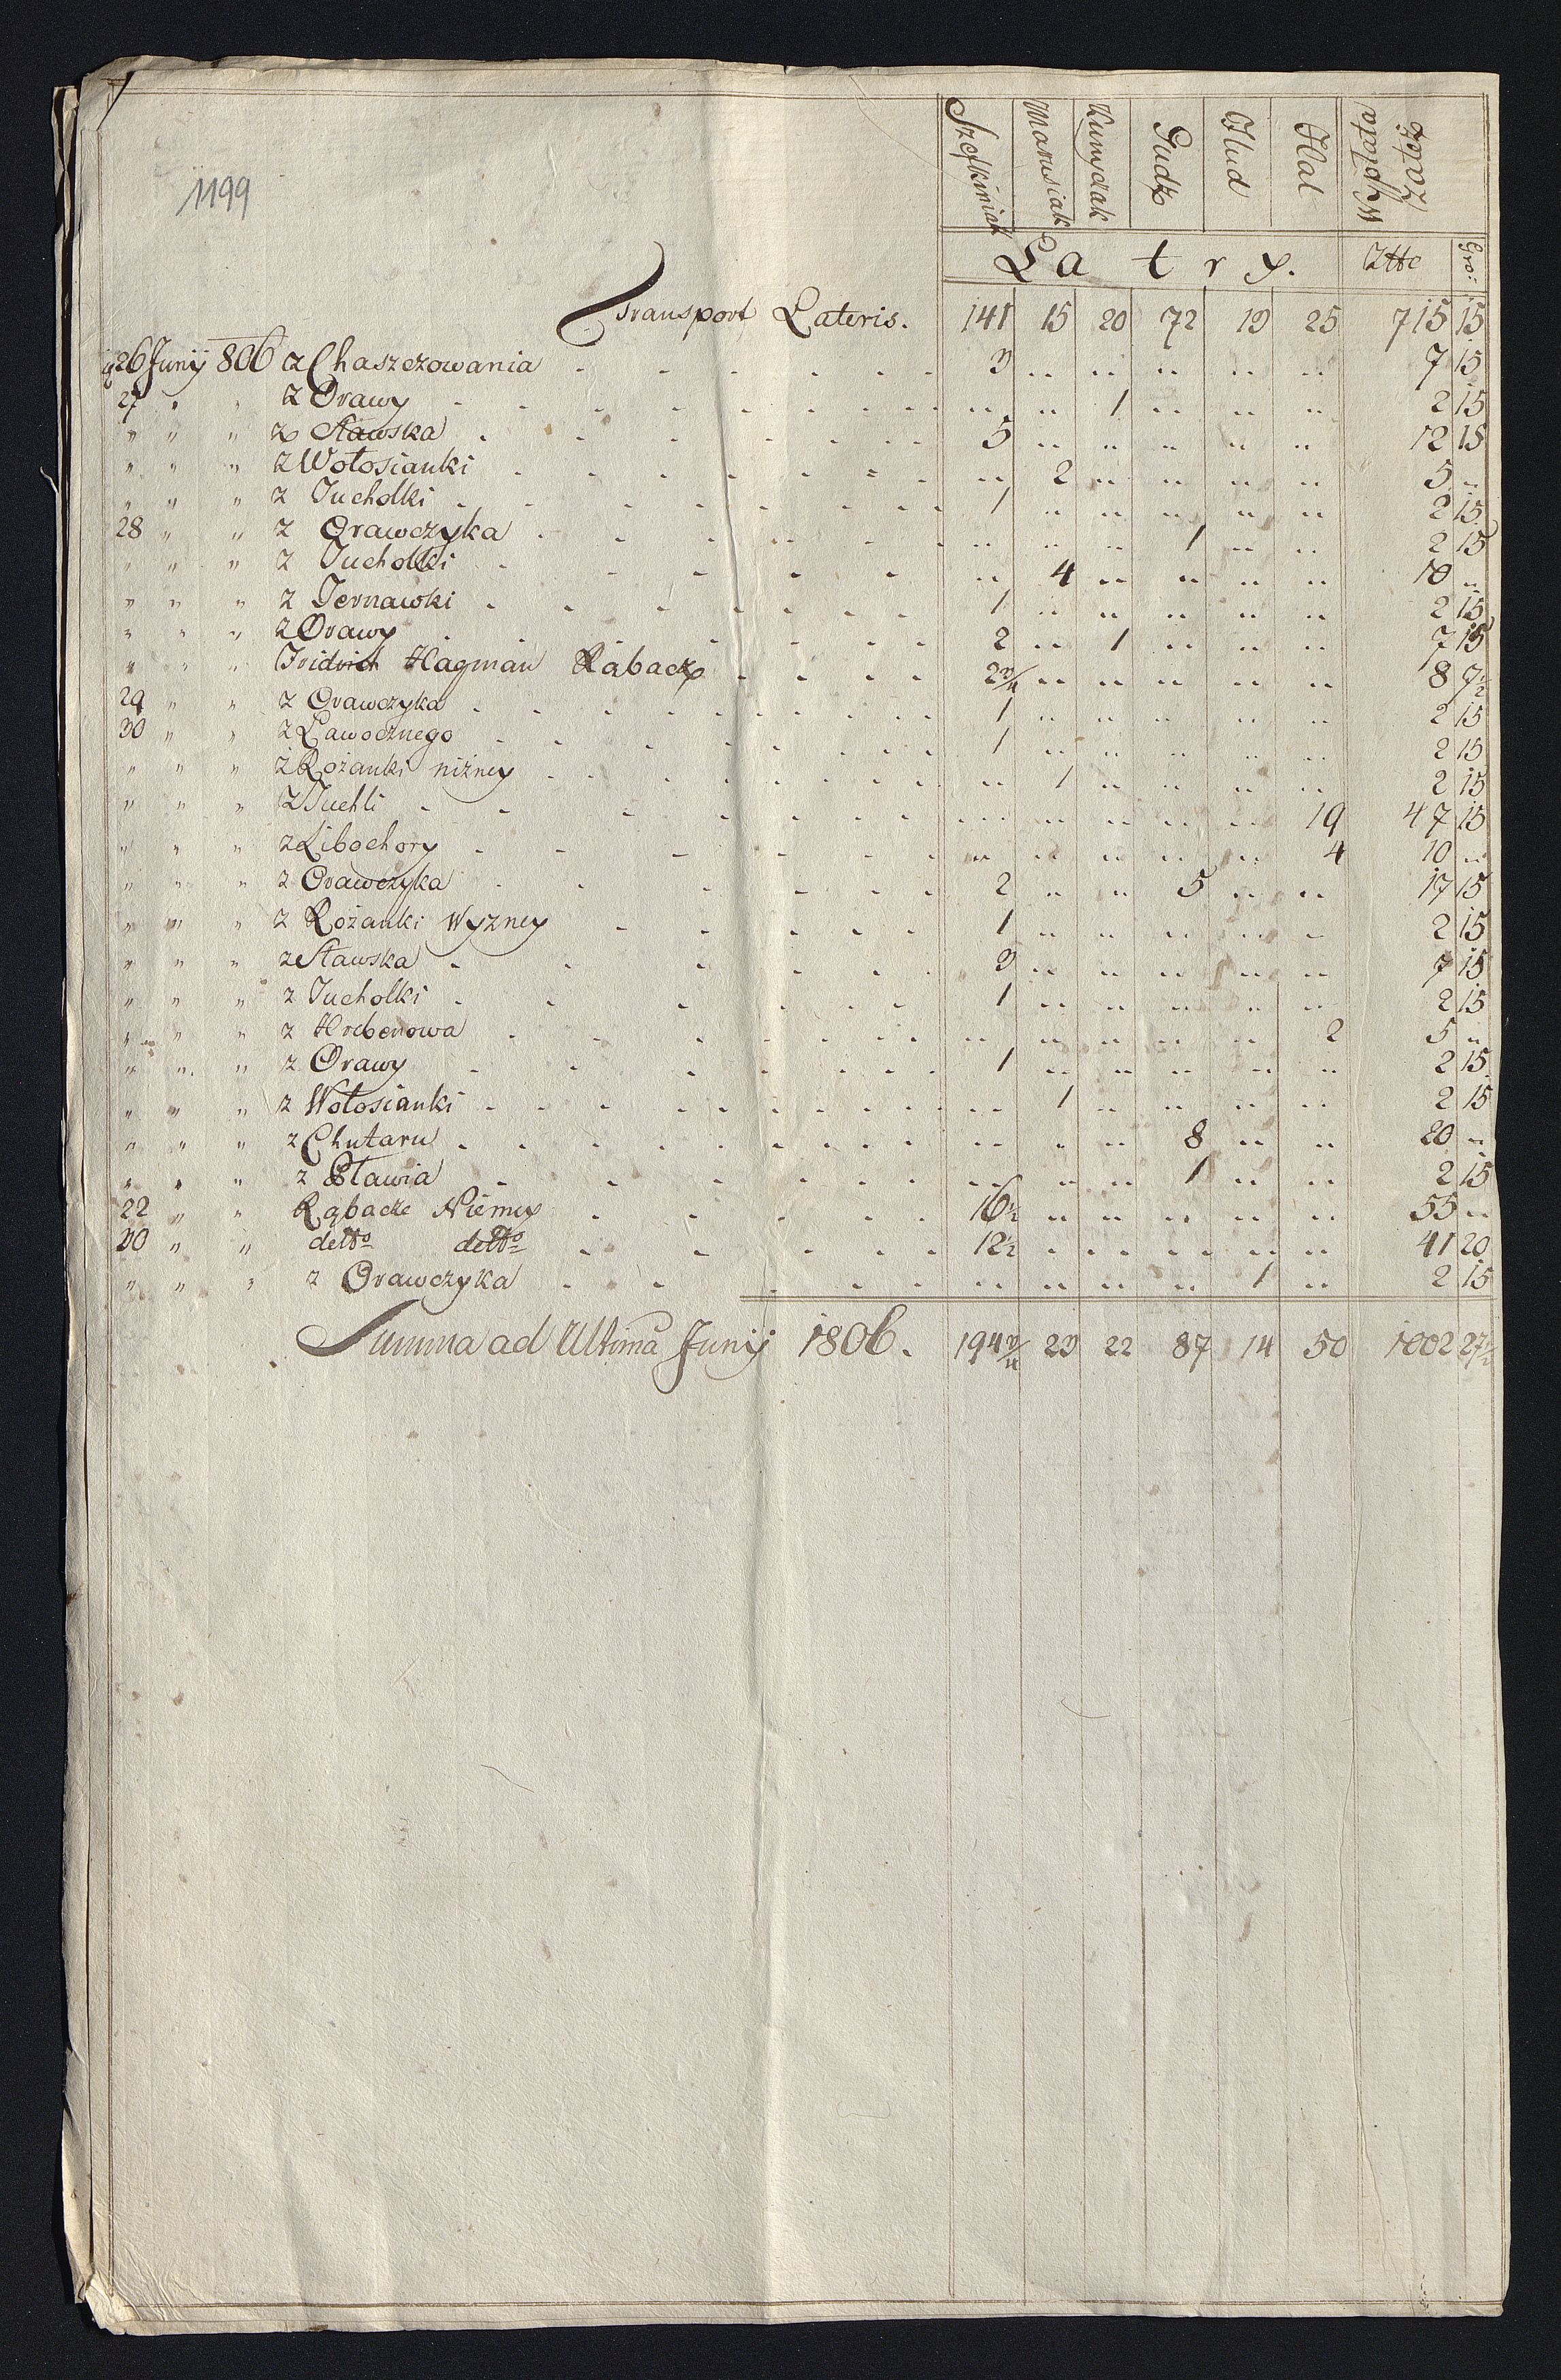 1199
Szefkiniak Marusiak Kumydak Gudz Ilud Hal Wypłata Zatęż
Latry. Złte Gro:
Transport Lateris. 141 15 20 72 13 25 715 15
26 Junij 806 z Chaszczowania 3 .. .. .. .. .. 7 15
27 " " z Orawy .. .. 1 .. .. .. 2 15
" " " z Sławska 5 .. .. .. .. .. 12 15
" " " z Wołosianki .. 2 .. .. .. .. 5 ..
" " " z Tucholki 1 .. .. .. .. .. 2 15
28 " " z Orawczyka .. .. .. 1 .. .. 2 15
" " " z Tucholki .. 4 .. .. .. .. 10 ..
" " " z Ternawki 1 .. .. .. .. .. 2 15
" " " z Orawy 2 .. 1 .. .. .. 7 15
" " " Fridrich Hagman Rąbacz 2 3/4 .. .. .. .. .. 8 7 1/2
29 " " z Orawczyka 1 .. .. .. .. .. 2 15
30 " " z Ławocznego 1 .. .. .. .. .. 2 15
" " " z Rożanki niżney .. 1 .. .. .. .. 2 15
" " " z Tuchli .. .. .. .. .. 19 47 15
" " " z Libochory .. .. .. .. .. 4 10 ..
" " " z Orawczyka 2 .. .. 5 .. .. 17 15
" " " z Rożanki Wyzney 1 .. .. .. .. .. 2 15
" " " z Sławska 3 .. .. .. .. .. 7 15
" " " z Tucholki 1 .. .. .. .. .. 2 15
" " " z Hrebenowa .. .. .. .. .. 2 5 ..
" " " z Orawy 1 .. .. .. .. .. 2 15
" " " z Wołosianki .. 1 .. .. .. .. 2 15
" " " z Chutaru .. .. .. 8 .. .. 20 ..
" " " z Pławia .. .. .. 1 .. .. 2 15
22 " " Rąbacze Niemcy 16 1/2 .. .. .. .. .. 55 ..
30 " " detto detto 12 1/2 .. .. .. .. .. 41 20
" " " z Orawczyka .. .. .. .. 1 .. 2 15
Summa ad Ultima Junij 1806. 194 3/4 23 22 87 14 50 1002 27 1/2